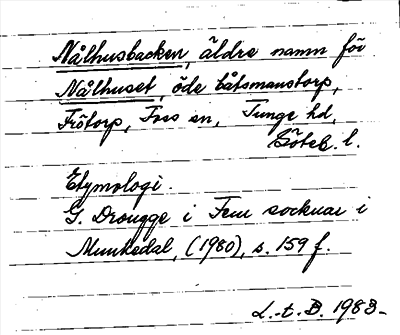 Nålhusbacken, äldre namn för
Nålhuset, öde båtsmanstorp,
Frötorp, Foss sn, Tunge hd,
Göteb. l.
Etymologi.
G. Drougge i Fem socknar i
Munkedal, (1980), s. 159 f.
L.-t. B. 1983